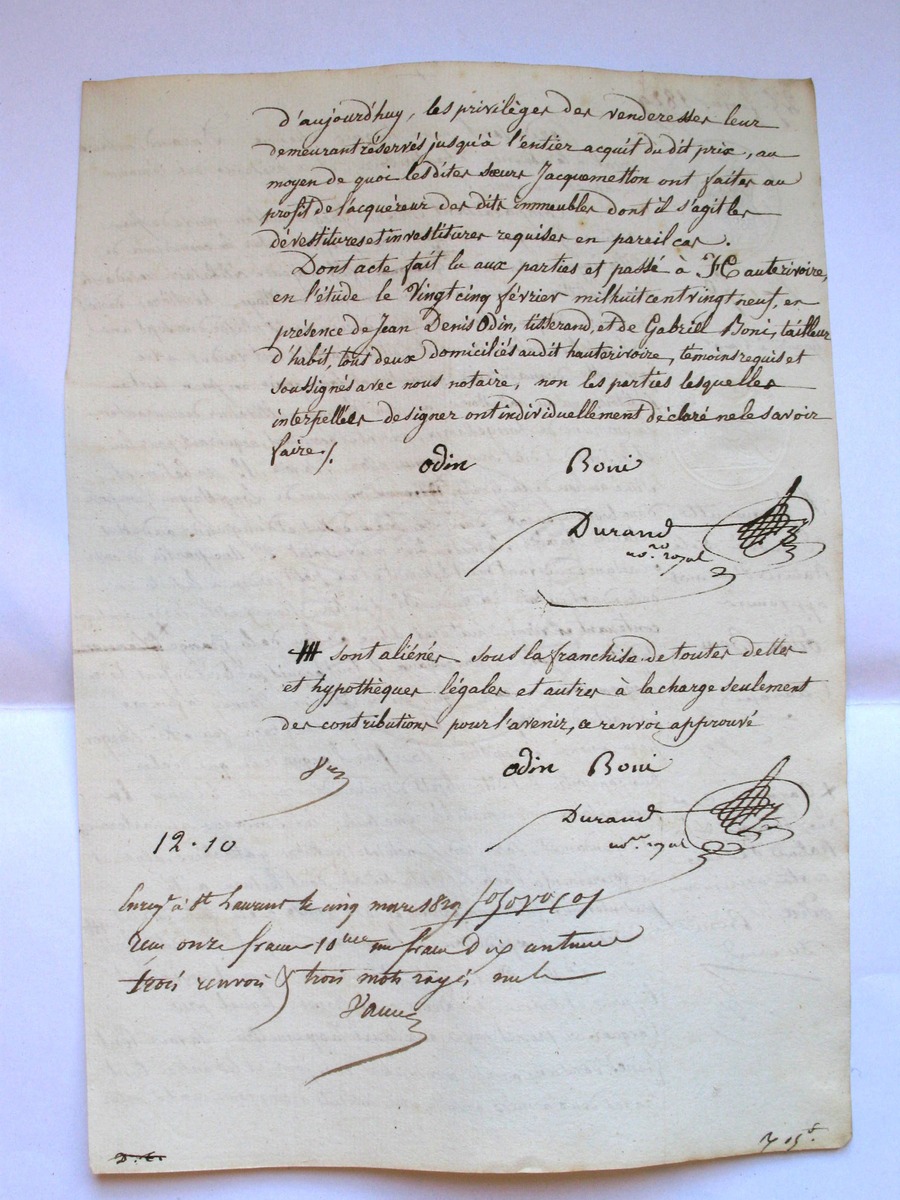 d'aujourd'huy, les privilèges des venderesses leur
demeurant réservés jusqu'à l'entier acquit du dit prix, au
moyen de quoi les dites sœurs Jacquemetton ont faites au
profit de l'acquéreur des dits immeubles dont il s'agit les
dévestitures et investitures requises en pareil cas.
Dont acte fait lu aux parties et passé à Hauterivoire,
en l'étude le Vingt cinq février mil huit cent vingt neuf, en
présence de Jean Denis Odin, tisserand, et de Gabriel Boni, tailleur
d'habit, tous deux domiciliés audit hauterivoire, témoins requis et
soussignés avec nous notaire, non les parties lesquelles
interpellées de signer ont individuellement déclaré ne le savoir
faire /.
odin Boni
Durand
no.re royal
sont aliénés sous la franchise de toutes dettes
et hypothèques légales et autres à la charge seulement
des contributions pour l'avenir, ce renvoi approuvé
odin Boni
Durand
no.re royal
12.10
Enreg. à St Laurent le cinq mars 1829
Reçu onze francs 10me un franc dix centimes
trois renvois & trois mots rayés nuls